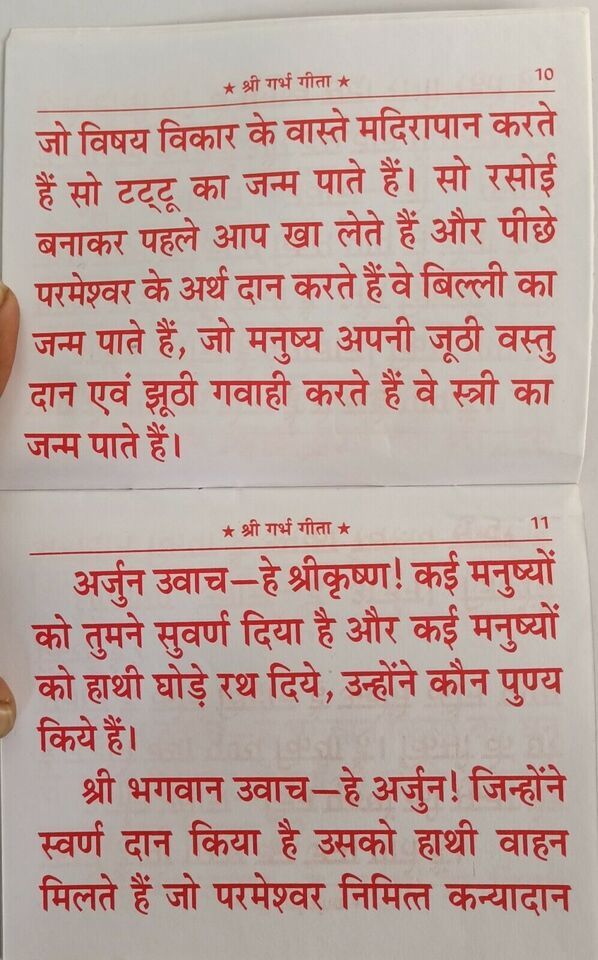 ★ श्री गर्भ गीता ★ 10
जो विषय विकार के वास्ते मदिरापान करते
हैं सो टट्टू का जन्म पाते हैं। सो रसोई
बनाकर पहले आप खा लेते हैं और पीछे
परमेश्वर के अर्थ दान करते हैं वे बिल्ली का
जन्म पाते हैं, जो मनुष्य अपनी जूठी वस्तु
दान एवं झूठी गवाही करते हैं वे स्त्री का
जन्म पाते हैं।
★ श्री गर्भ गीता ★ 11
अर्जुन उवाच—हे श्रीकृष्ण! कई मनुष्यों
को तुमने सुवर्ण दिया है और कई मनुष्यों
को हाथी घोड़े रथ दिये, उन्होंने कौन पुण्य
किये हैं।
श्री भगवान उवाच—हे अर्जुन! जिन्होंने
स्वर्ण दान किया है उसको हाथी वाहन
मिलते हैं जो परमेश्वर निमित्त कन्यादान